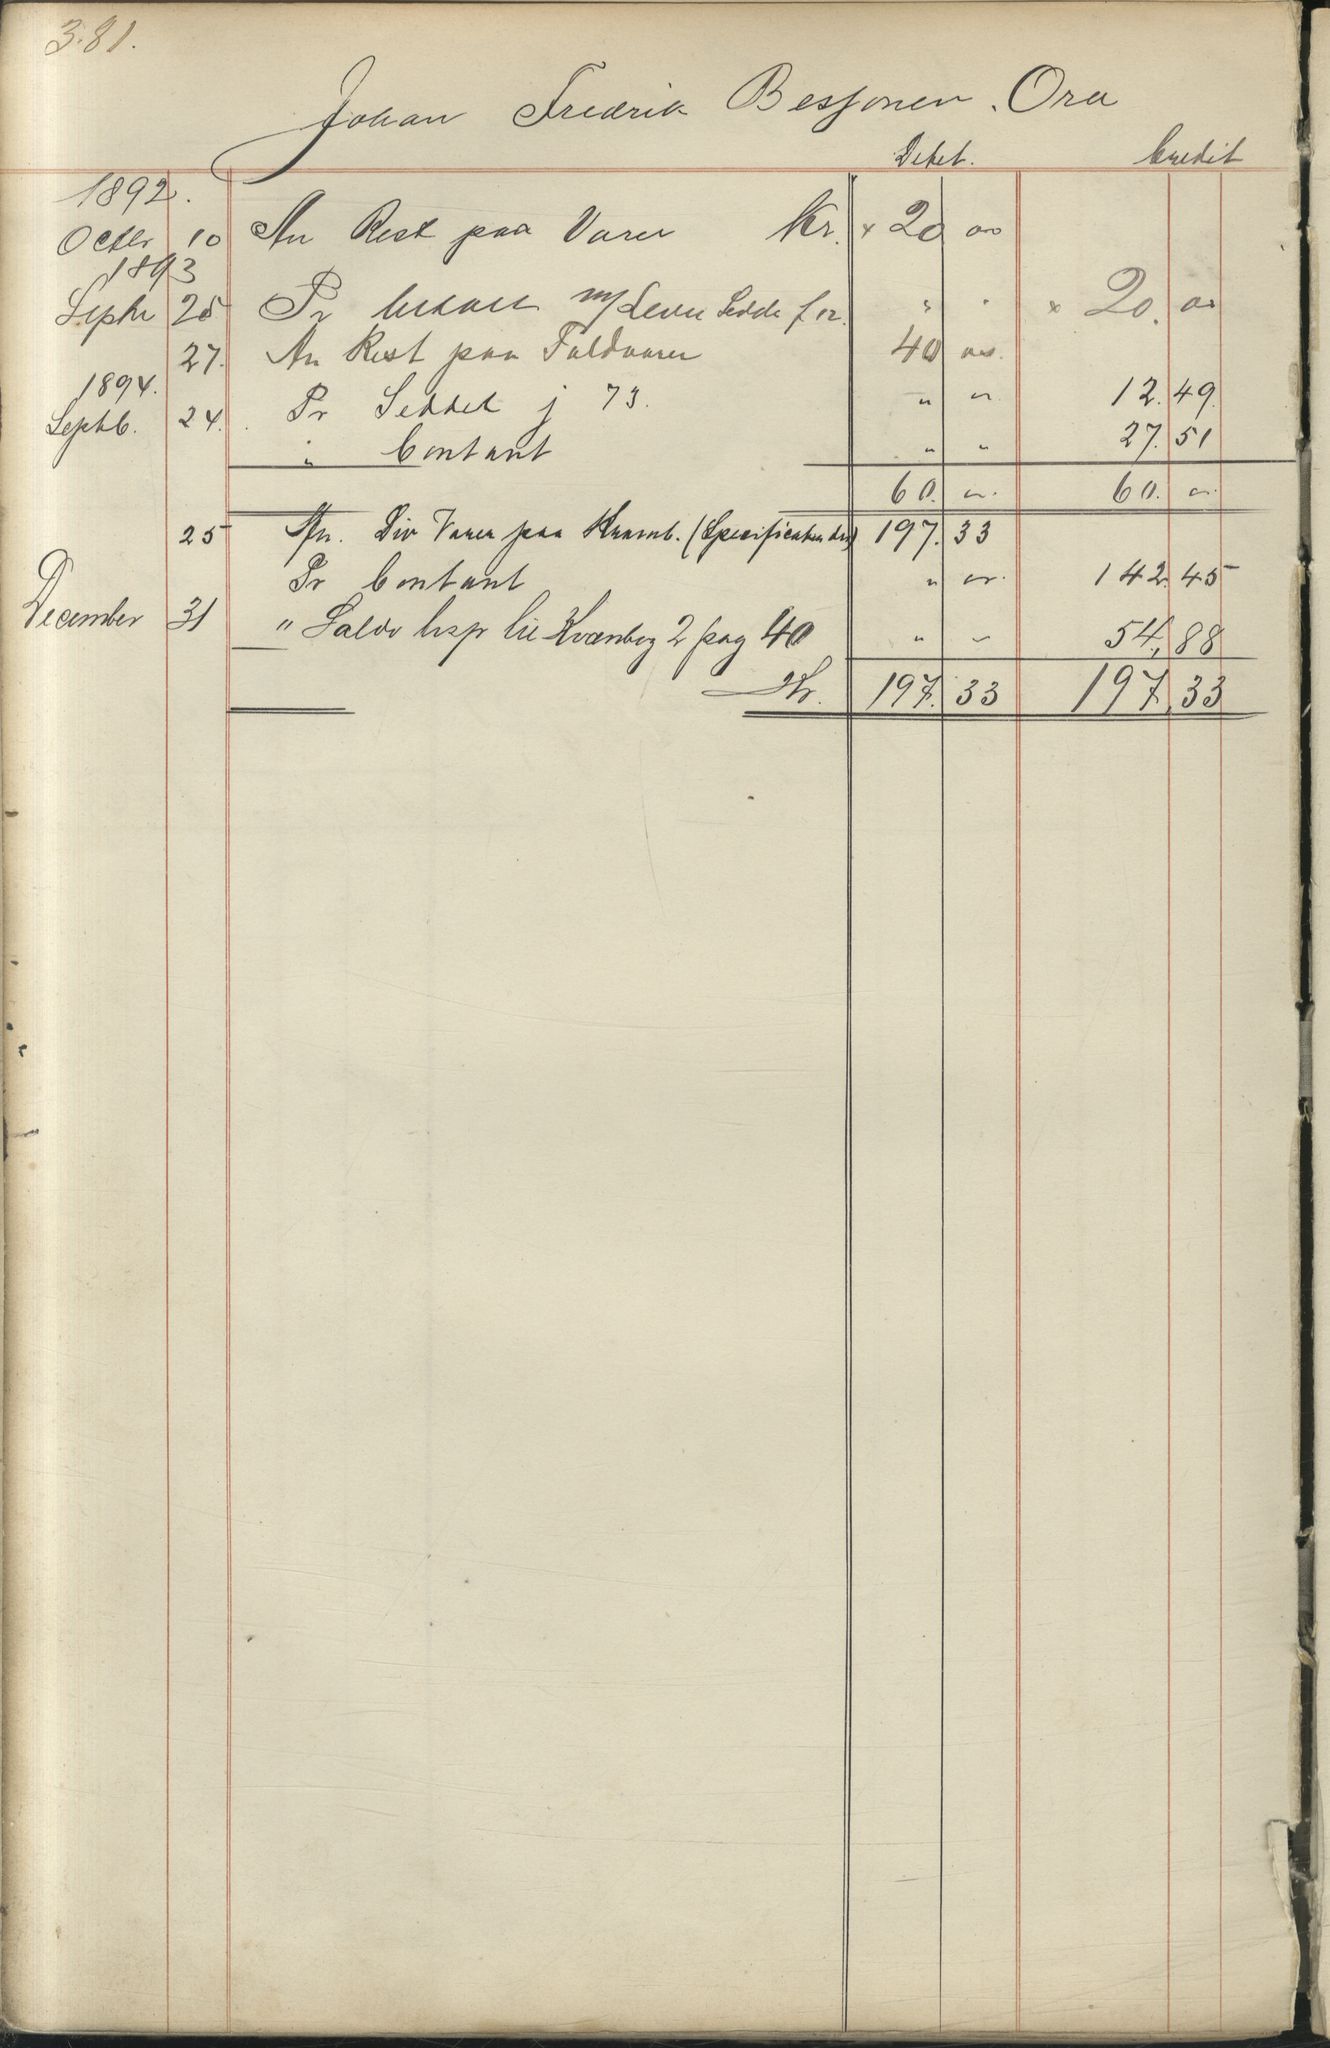 381.
Johan Fredrik Besjonen. Ora
Debet. Credit
1892.
Octbr 10 An Rest paa Varer Kr. × 20 00
1893
Septr 25 Pr m/ Sedde f " " × 20. 00
27. An Rest paa Fuldvarer 40 00.
1894.
Septb. 24. Pr Seddel j 73. " " 12.49.
" Contant " " 27.51
60. " 60. "
25 An. Div Varer paa Kramb. (Specification 197.33
Pr Contant " " 142.45
December 31 " Saldo trsp til Kvænbog 2 pag 40 " " 54,88
Kr. 197.33 197,33